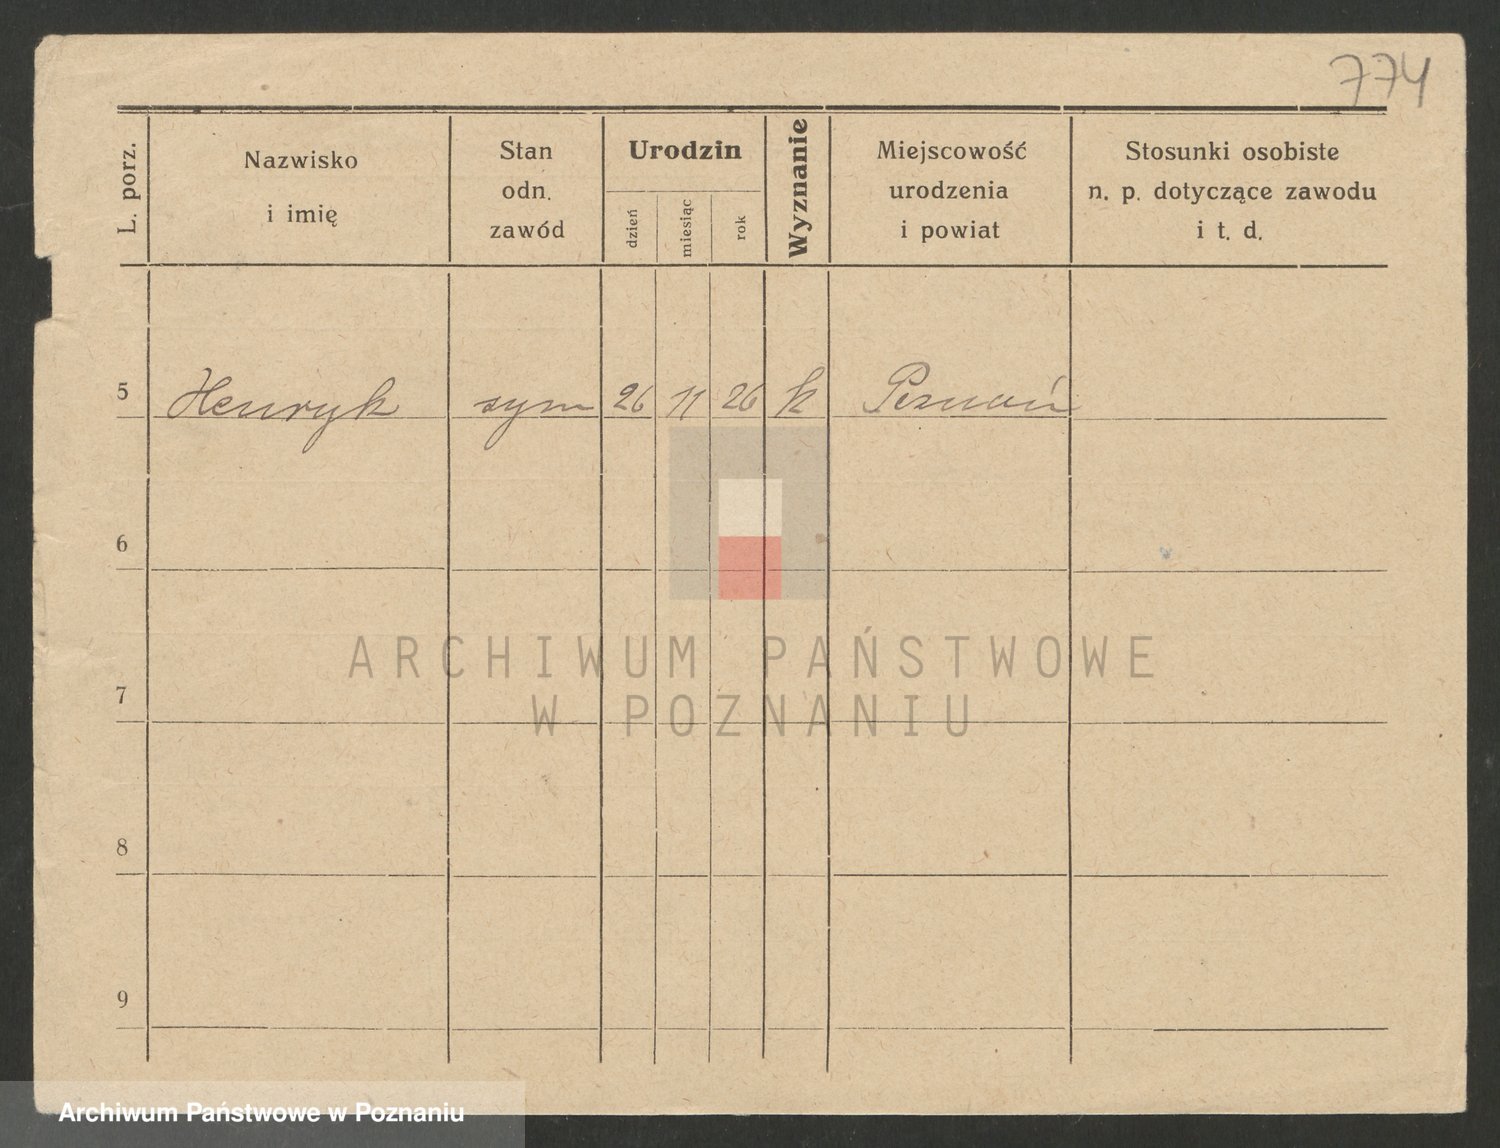 774
L. porz.
Nazwisko
i imię
Stan
odn.
zawód
Urodzin
dzień
miesiąc
rok
Wyznanie
Miejscowość
urodzenia
i powiat
Stosunki osobiste
n. p. dotyczące zawodu
i t. d.
5 Henryk syn 26 11 26 k Poznań
6
7
8
9
ARCHIWUM PAŃSTWOWE
W POZNANIU
Archiwum Państwowe w Poznaniu